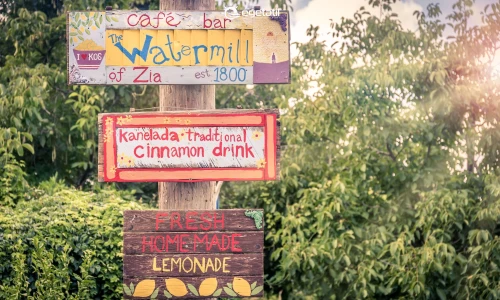 café bar
The Watermill
of Zia est. 1800
I KOS
Kanelada traditional
cinnamon drink
FRESH
HOME MADE
LEMONADE